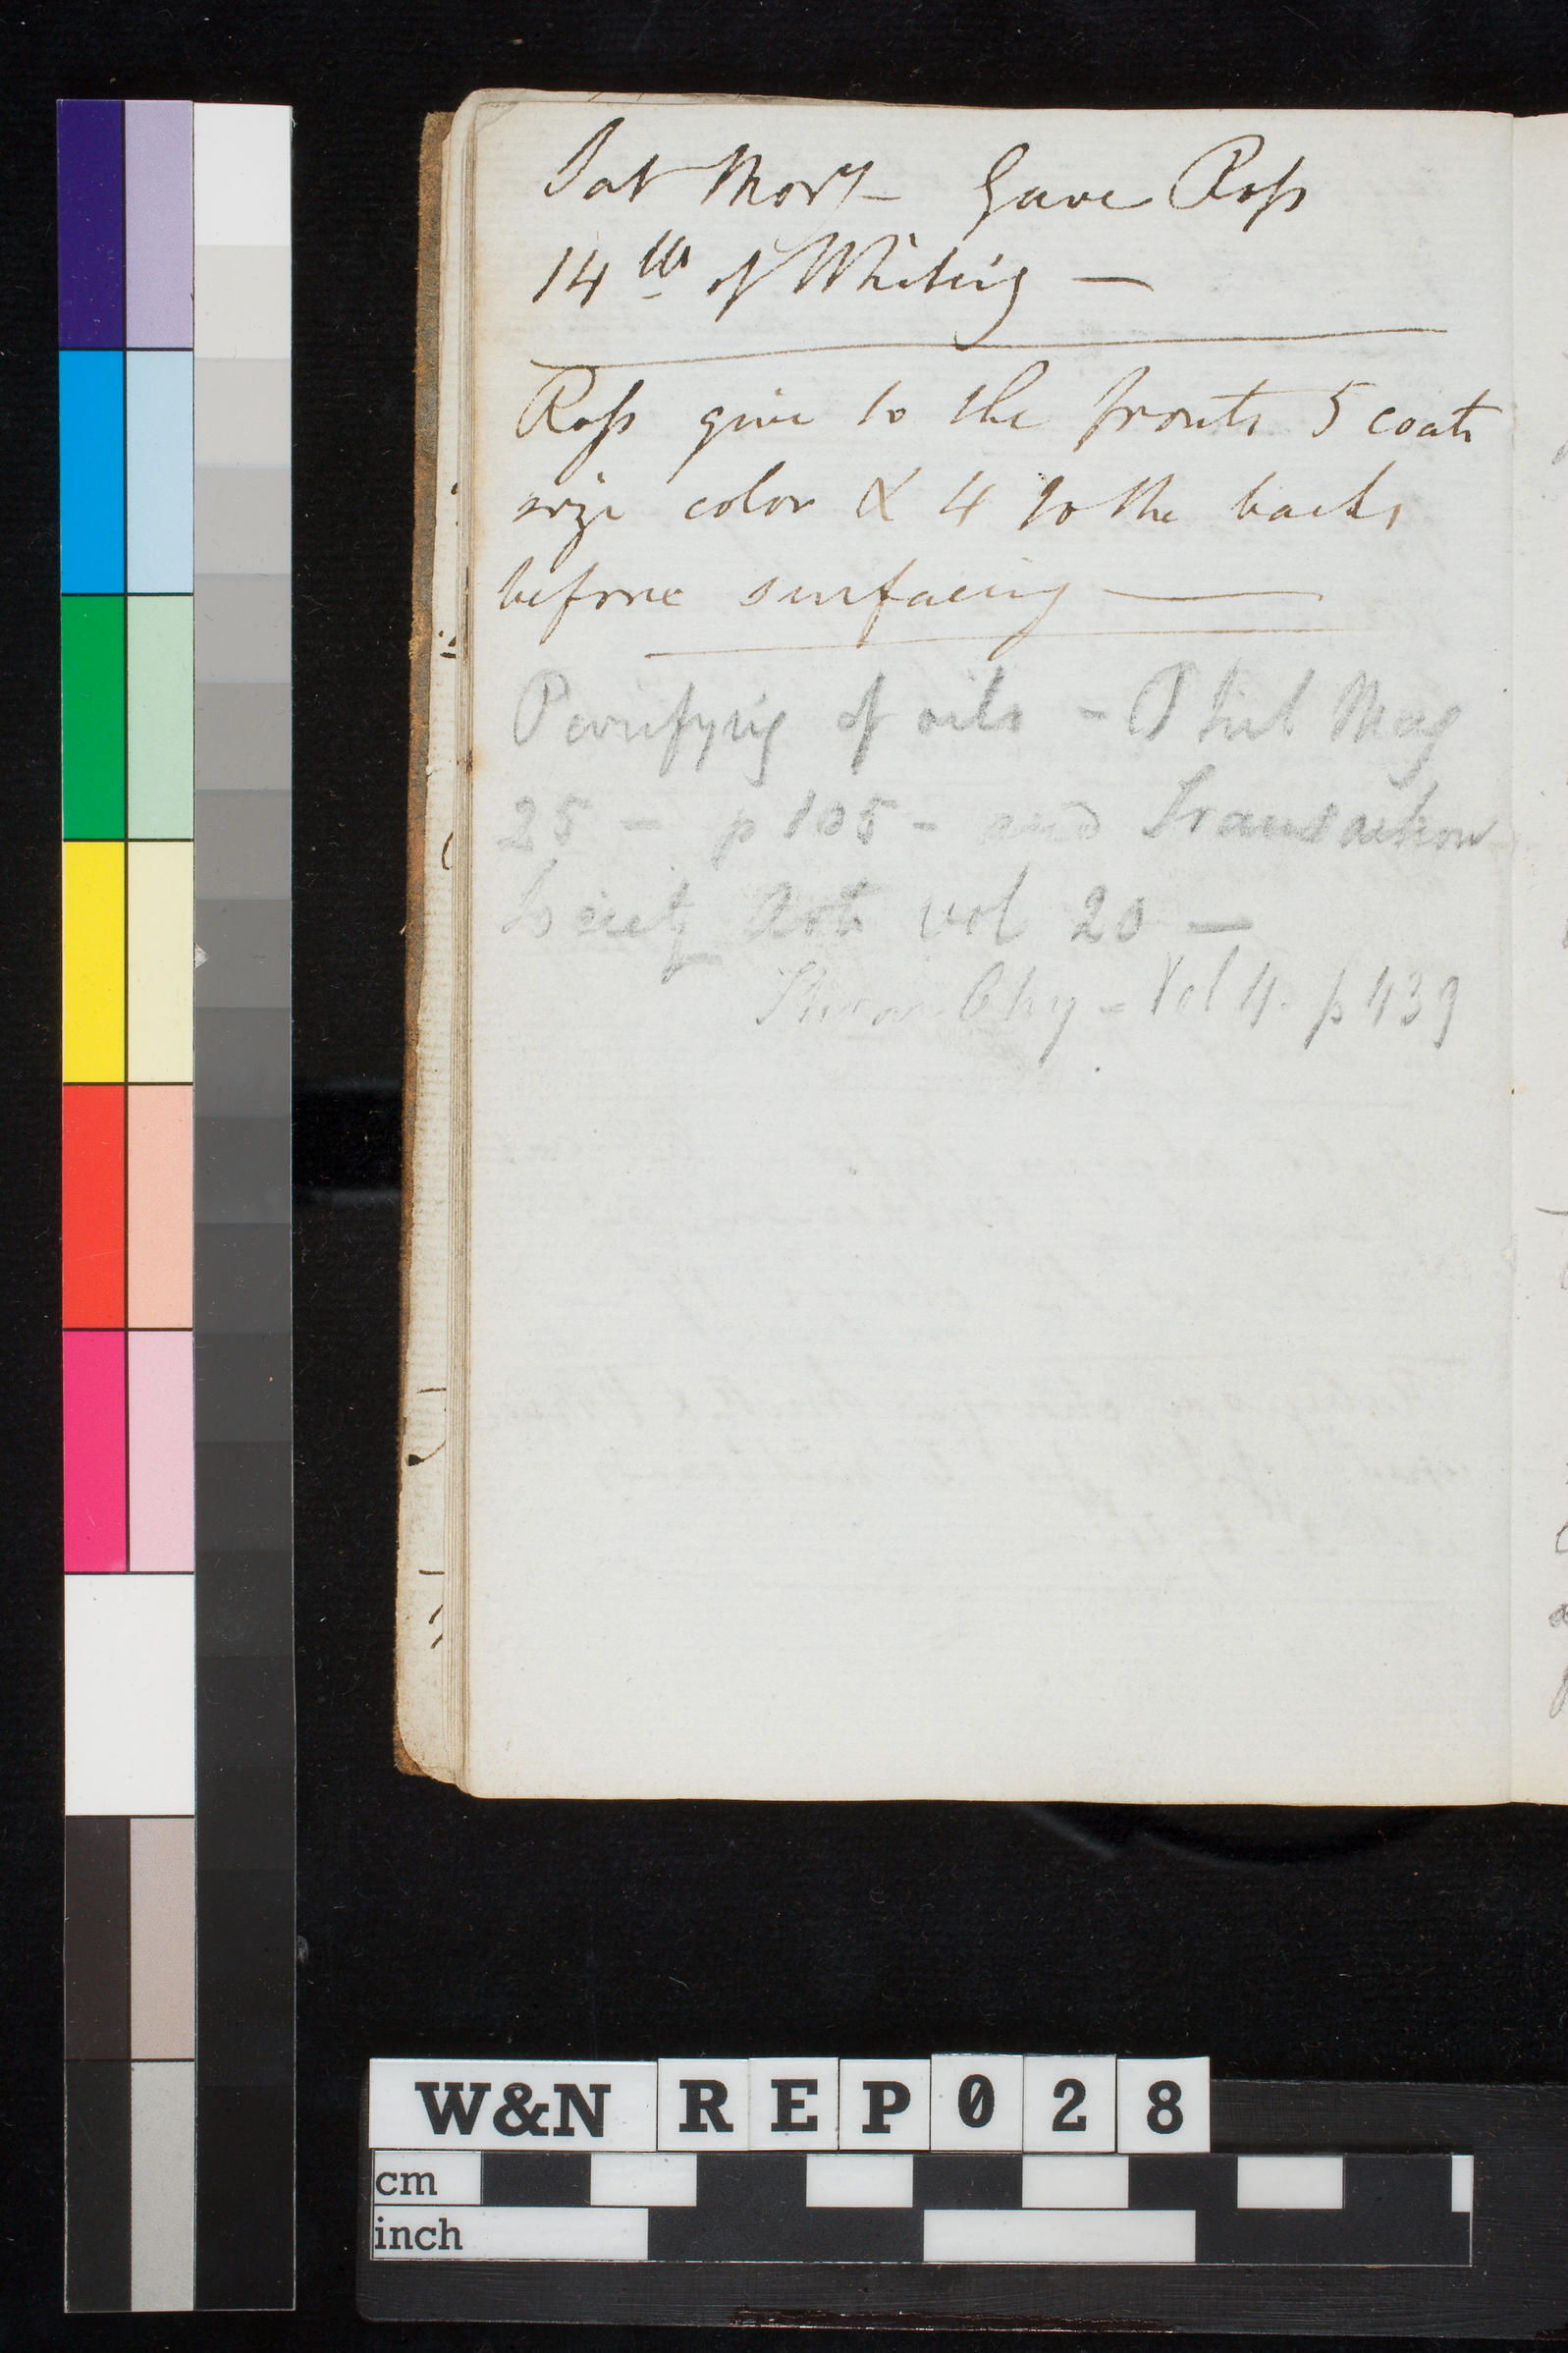 Sat Mor'g - Gave Ross
14 lb of Whiting —
Ross give to the fronts 5 coats
size color & 4 to the backs
before surfacing —
Purifying of oils - Phil Mag
25 - p 105 - and Transaction
Society Arts vol 20 —
Chy - Vol 4. p 439
W&N REP028
cm
inch